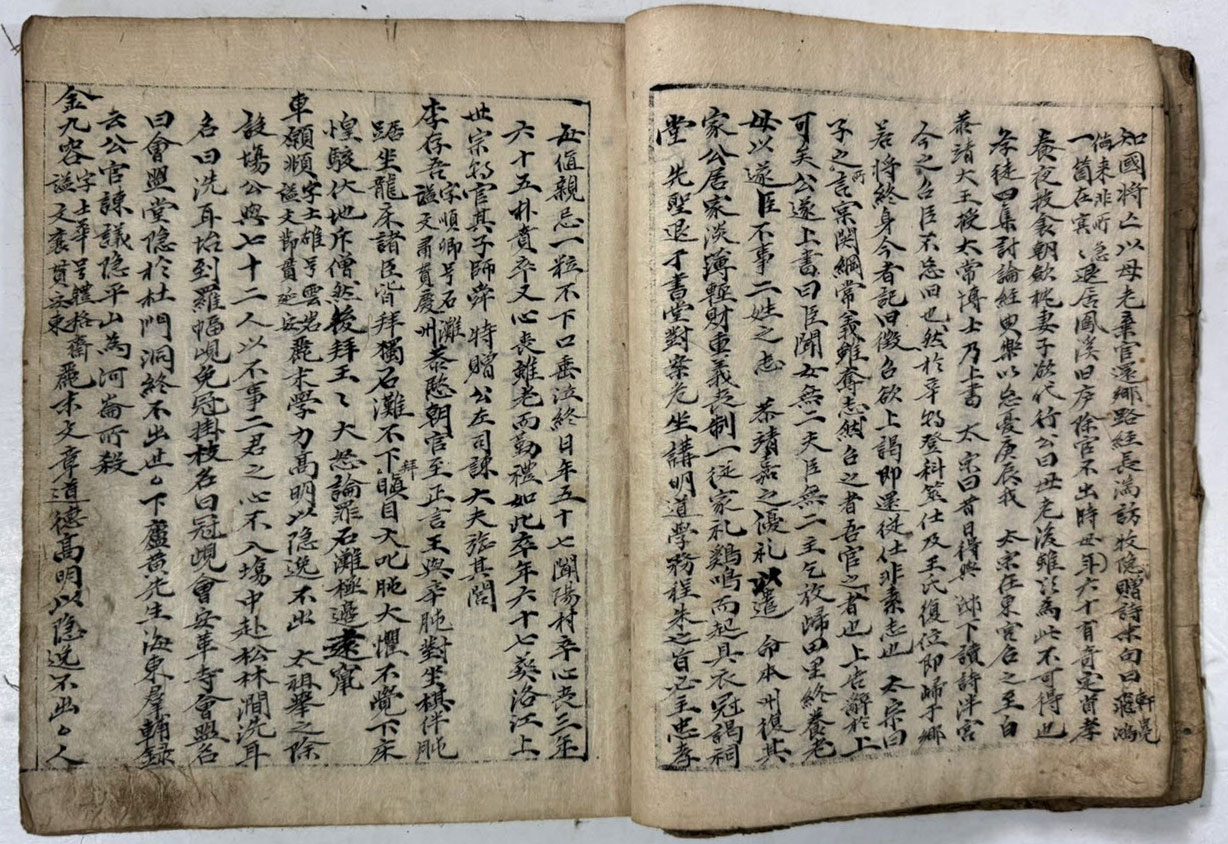 知國將亡以母老棄官還鄉路經長湍訪牧隱贈詩末句曰飛鴻
軒冕倘来非所急
一箇在冥〻退居鳳溪旧庐除官不出時母年六十有奇定省孝
養夜抜衾朝欲槐妻子欲代行公曰母老後雖欲為此不可得也
聚徒四集討論経史樂以忘憂庚辰我　太宗在東宮召之至白
恭靖大王授太常博士乃上書　太宗曰昔日得與　邸下讀詩泮宮
今之召臣不忘旧也然於辛朝登科筮仕及王氏復位即歸于鄉
若將終身今者記旧徴召欲上謁即還従仕非素志也　太宗曰
子之所言宗関綱常義雖奪志然召之者吾官之者也上官辭於上
可矣公遂上書曰臣聞女無二夫臣無二主乞放歸田里終養老
母以遂臣不事二姓之志　恭靖嘉之優礼以遣　命本州復其
家公居家淡薄輕財重義喪制一従家礼鷄鳴而起具衣冠謁祠
堂　先聖退于書堂對案危坐講明道學務程朱之旨必主忠孝
每值親忌一粒不下口垂泣終日年五十七聞陽村卒心喪三年
六十五朴賁卒又心喪雖老而勤禮如此卒年六十七葵洛江上
世宗朝官其子師舜特贈公左司諌大夫旌其閭
李存吾字順卿号石灘謚文肅貫慶州恭愍朝官至正言王與辛肫對坐棋伴肫
踞坐龍床諸臣皆拜獨石灘不下拜瞋目大叱肫大懼不覺下床
惶駭伏地斥僧然後拜王〻大怒論罪石灘極邊遠竄
車願頫字士雄号雲岩謚文節貫延安麗末學力高明以隐逸不出　太祖舉之除
設塲公與七十二人以不事二君之心不入塲中赴松林澗洗耳
名曰洗耳坮到羅幅峴免冠掛枝名曰冠峴會安華寺會盟名
曰會盟堂隐於杜門洞終不出世〻下蘆黄先生海東羣輔録
云公官諌議隐平山為河崙所殺
金九容字士華号體格齋謚文襄貫安東麗末文章道德高明以隐逸不出〻人